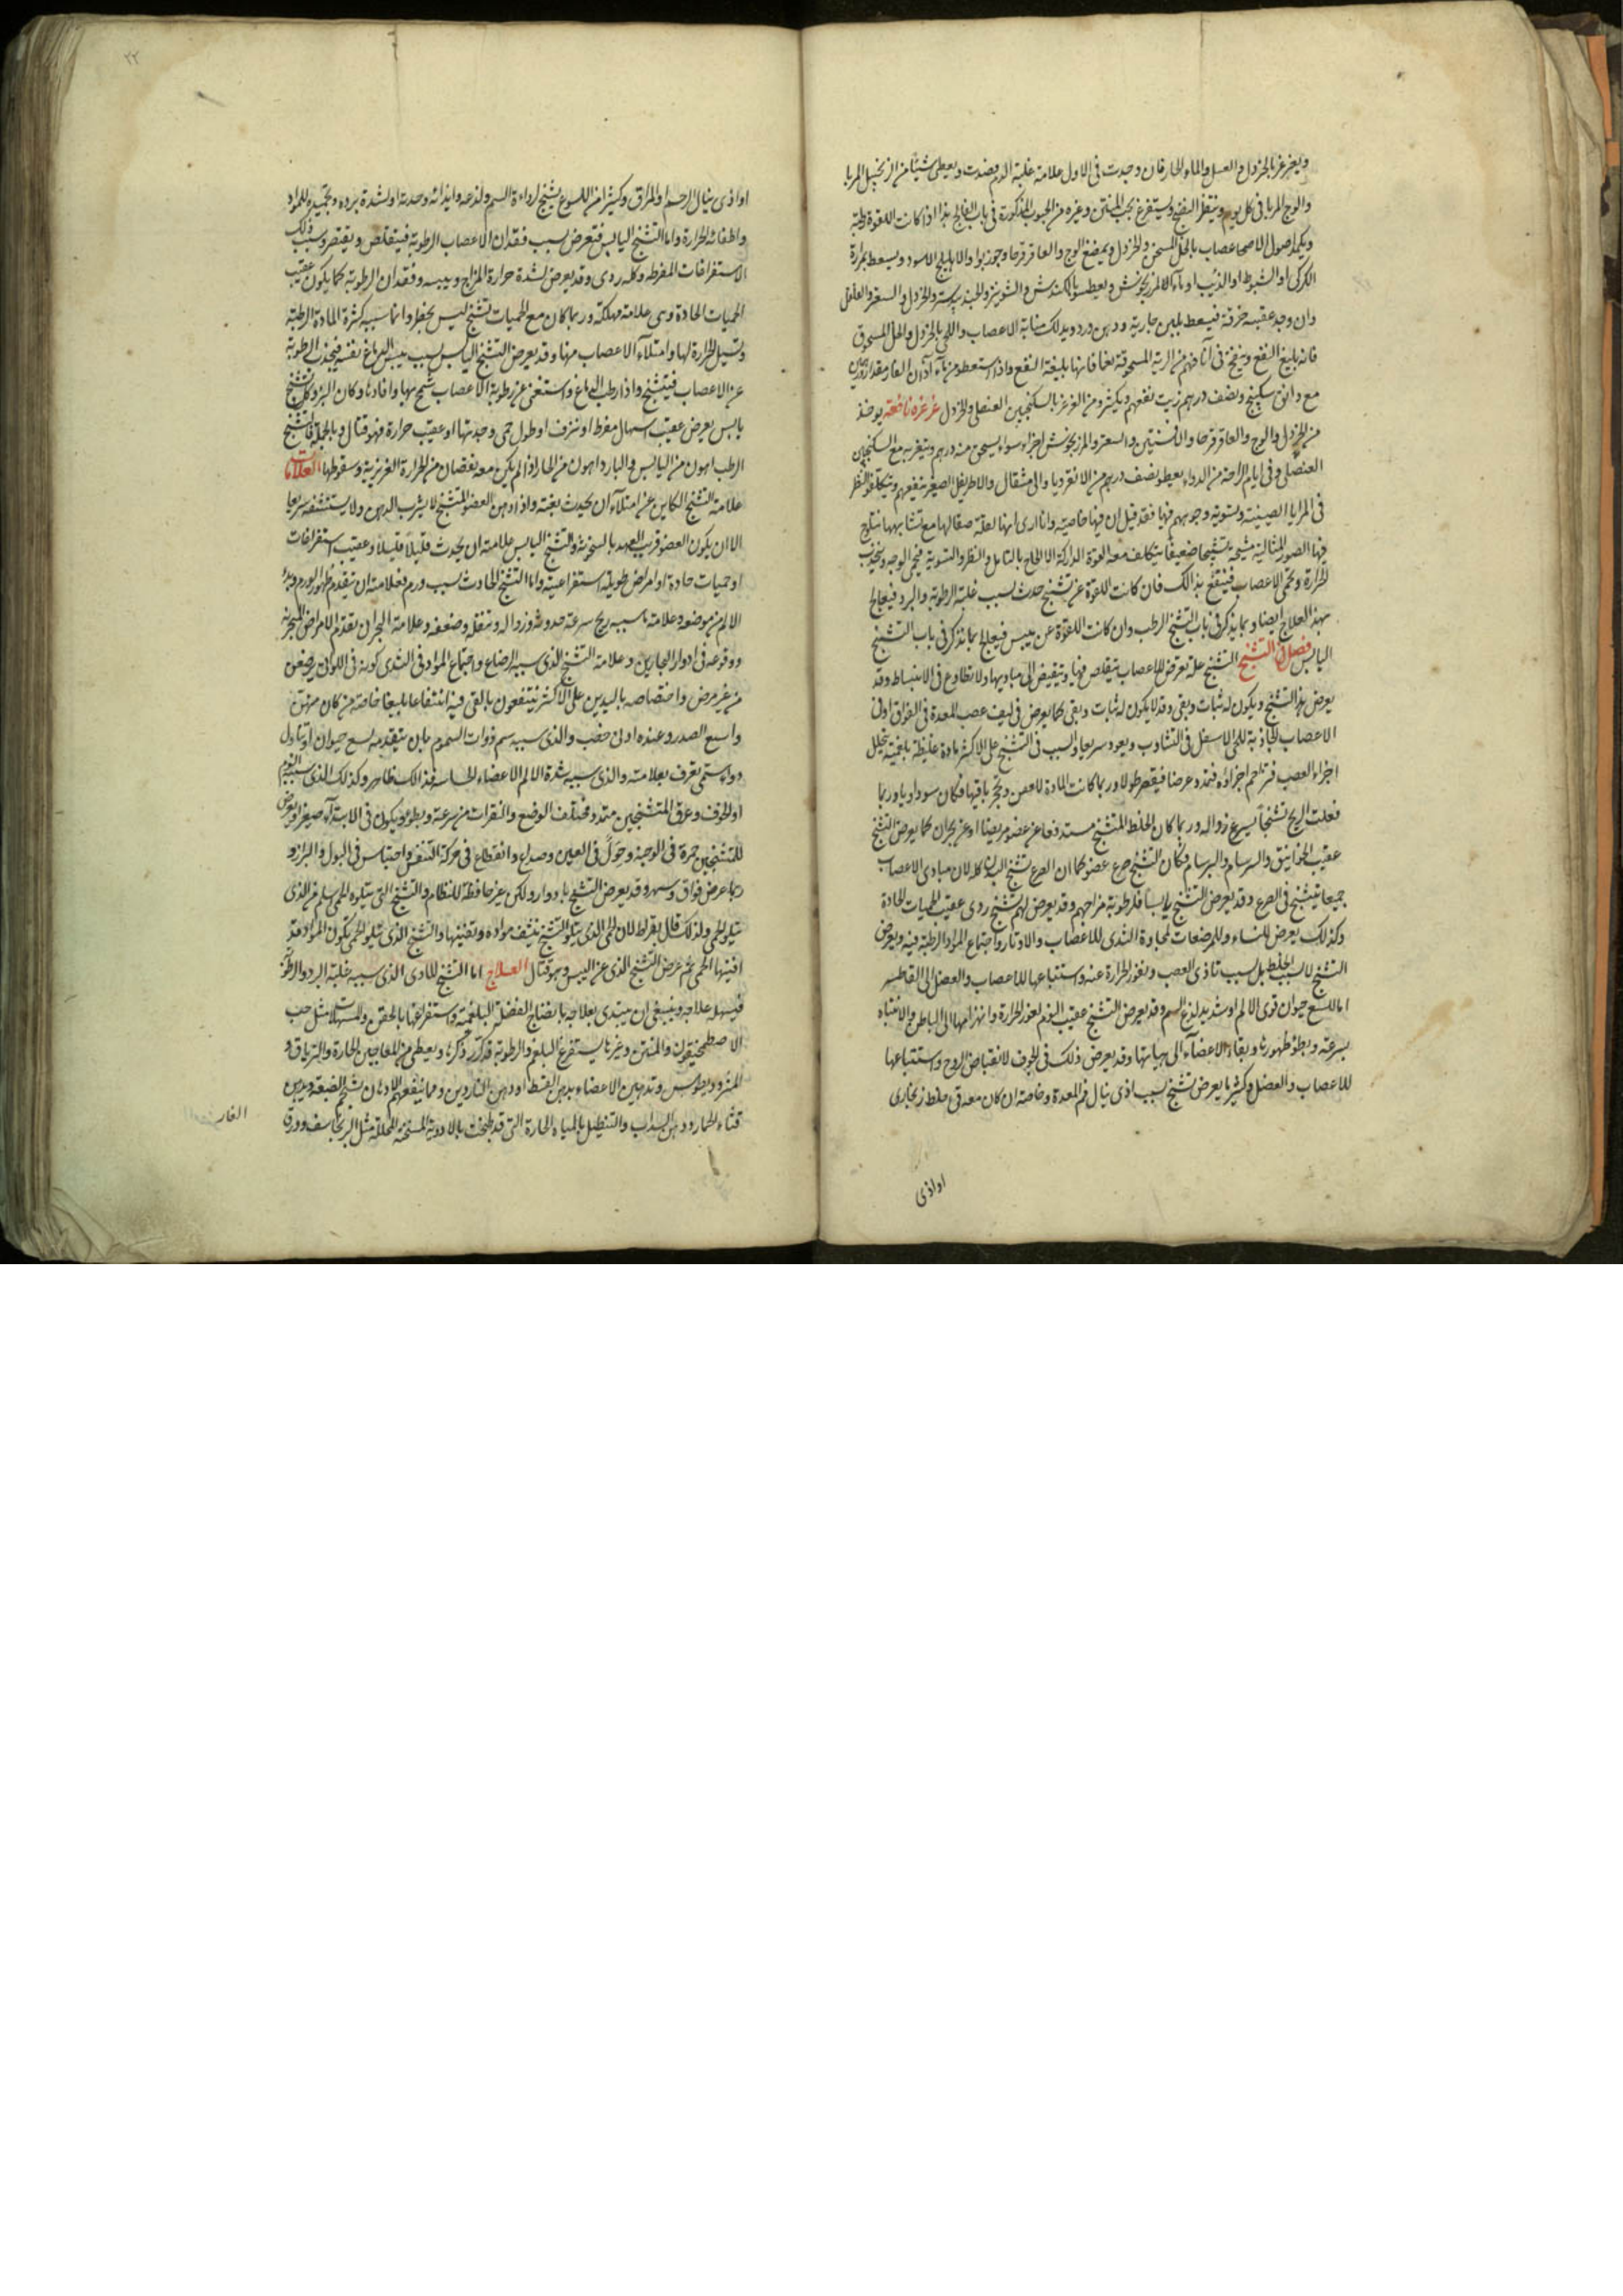 ويغرغر بالخردل والعسل والماء الحار فان وجدت فى الاول علامة غلبة الدم فصدت ويعطى شيئا من الزنجبيل المربا
والوج المربا فى كل يوم وينتظر النضج ويستفرغ بحب المنتن وغيره من الحبوب المذكورة فى باب الفالج هذا اذا كانت اللقوة رطبة
ويكمد اصول الاعصاب بالخل المسخن والخردل ويمضغ الوج والعاقرقرحا وجوزبوا والاهليلج الاسود ويسعط بمرارة
الكركى او الشبوط او الذئب او ماء المرزنجوش ويعطس بالكندش والشونيز والجندبيدستر والخردل والسعتر والفلفل
وان وجد عقيبه حرقة فيسعط بلبن جارية ودهن ورد ويدلك منابة الاعصاب واللحى بالخردل والخل المسحوق
فانه بليغ النفع وينفخ فى آنافهم من الرتة المسحوقة نعما فانها بليغة النفع واذا استعطوا من ماء آذان الفار مقدار درهمين
مع دانق سكبينج ونصف درهم زيت نفعهم ويكثروا من الغرغر بالسكنجبين العنصلى والخردل غرغره نافعة يوخذ
من الخردل والوج والعاقرقرحا والافسنتين والسعتر والمرزنجوش اجزاء سواء يسحق منه درهم ويتغرغر به مع السكنجبين
العنصلى وفى ايام الراحة من الدواء يعطو نصف درهم من الانقرديا والى مثقال والاطريفل الصغير ينفعهم ويتكلفوا النظر
فى المرايا الصينية وتسوية وجوههم فيها فقد قيل ان فيها خاصية وانا ارى انها لعلة صقالها مع تشابهها تنلوح
فيها الصور المثالية شبحية تشبحا ضعيفا يتكلف معه القوة الداركة الالحاح بالتامل والنظر والتسوية فيحمى الوجه وتنجذب
الحرارة وتحمى الاعصاب فينتفع بذالك فان كانت اللقوة عن تشنج حدث بسبب غلبة الرطوبة والبرد فيعالج
بهذ العلاج ايضا وبما يذكر فى باب التشنج الرطب وان كانت اللقوة عن يبس فيعالج بما يذكر فى باب التشنج
اليابس فصل فى التشنج التشنج علة تعرض للاعصاب يتقلص فيها ويتقبض الى مباديها ولا تطاوع فى الانبساط وقد
يعرض هذ التشنج ويكون له ثبات وبقى وقد لا يكون له ثبات وبقى كما يعرض فى ليف عصب المعدة فى الفواق او فى
الاعصاب الجاذبة للحى الاسفل فى التثاوب ويعود سريعا والسبب فى التشنج على الاكثر مادة غليظة بلغمية تخلل
اجزاء العصب فتزاحم اجزاؤه فتمدد عرضا فيقصر طولا وربما كانت المادة لا تعفن وتحجر باقيها فكان سوداويا وربما
فعلت الريح تشنجا يسرع زواله وربما كان الخلط المتشنج مستدفعا عن عضو مريضا او عن بحران كما يعرض التشنج
عقيب الخوانيق والسرسام والبرسام فكان التشنج صرع عضو كما ان الصرع تشنج البدن كله لان مبادى الاعصاب
جميعا يتشنج فى الصرع وقد يعرض التشنج للنسا لرطوبة مزاجهم وقد يعرض لهم تشنج ردى عقيب الحميات الحادة
وكذلك يعرض للنساء وللمرضعات لمجاورة الثدى للاعصاب والاوتار واجتماع المواد الرطبة فيه ويعرض
التشنج لا بسبب الخلط بل بسبب تاذى العصب ونفوذ الحرارة عنه واستتباعها للاعصاب والعضل الى القاطبه
اما للسع حيوان قوى الالم او شديد لذع السم وقد يعرض التشنج عقيب النوم لغور الحرارة وانهزامها الى الباطن والانتباه
بسرعة وبطؤ ظهورها وبقاء الاعضاء الى هيأتها وقد يعرض ذلك فى الخوف لانقباض الروح واستتباعها
للاعصاب والعضل وكثيرا ما يعرض تشنج بسبب اذى ينال فم المعدة وخاصة ان كان معه قى خلط زنجارى
او اذى
٢٢
او اذى ينال الرحم او المراق وكثيرا من اللسوع يتشنج لرداءة السم ولذعه وايذائه وحدته او لشدة برده وتجميده للمواد
واطفائه الحرارة واما التشنج اليابس فتعرض بسبب فقدان الاعصاب الرطوبة فيتقلص ويقتصر وسبب ذلك
الاستفراغات المفرطه وكله ردى وقد يعرض لشدة حرارة المزاج ويبسه وفقدان الرطوبة كما يكون عقيب
الحميات الحادة وهى علامة مهلكة وربما كان مع الحميات تشنج ليس بخطر وانما سببه كثرة المادة الرطبة
وتسيل الحرارة لها وامتلاء الاعصاب منها وقد يعرض التشنج اليابس بسبب يبس الدماغ نفسه فيجذب الرطوبة
عن الاعصاب فيتشنج واذا رطب الدماغ واستغنى عن رطوبة الاعصاب سمح بها وافادها وكان البرؤ وكل تشنج
يابس يعرض عقيب اسهال مفرط او نزف او طول حمى وحدتها او عقيب حرارة فهو قتال وبالجملة فالتشنج
الرطب اهون من اليابس والبارد اهون من الحار اذا لم يكن معه نقصان من الحرارة الغريزية وسقوطها العلامات
علامة التشنج الكاين عن امتلاء ان يحدث بغتة واذا دهن العضو المتشنج لا يشرب الدهن ولا يستنشفه سريعا
الا ان يكون العضو قريب العهد بالسخونة والتشنج اليابس علامته ان يحدث قليلا قليلا وعقيب استفراغات
او حميات حادة او امراض طويلة استفراغية واما التشنج الحادث بسبب ورم فعلامته ان يتقدم ظهور الورم وبدء
الالم من موضعه وعلامة ما سببه ريح سرعة حدوثه وزواله وتنقله وضعفه وعلامة البحران تقدم الامراض البحرانية
ووقوعه فى ادوار البحارين وعلامة التشنج الذى سببه الرضاع واجتماع المواد فى الثدى كونه فى اللواتى يرضعن
من غير مرض واختصاصه باليدين على الاكثر ينتفعون بالقى فيه انتفاعا بليغا خاصة من كان منهن
واسع الصدر وعنده ادنى خصب والذى سببه سم ذوات السموم بان يتقدمه لسع حيوان او تناول
دواء سمى يعرف بعلامته والذى سببه شدة الالم الاعضاء الحاسة فذالك ظاهر وكذلك الذى سببه النوم
او الخوف وعرق المتشنجين متدد مختلف الوضع والنقرات من سرعة وبطؤ ويكون فى الابتداء صغيرا ويعرض
للمتشنجين حمرة فى الوجنة وحول فى العين وصداع وانقطاع فى حركة التنفس واحتباس فى البول والبراز و
ربما عرض فواق وسهر وقد يعرض التشنج بادوار ولكن غير حافظة للنظام والتشنج التى يتلوه الحمى اسلم من الذى
يتلو الحمى ولذلك قال بقراط لان الحمى الذى يتلو التشنج ينشف مواده وتفنيها والتشنج الذى يتلو الحمى تكون المواد قد
افنيتها الحمى ثم عرض التشنج الذى عن اليبس وهو قتال العلاج اما التشنج المادى الذى سببه غلبة البرد والرطوبة
فيسهله علاجه وينبغى ان يبتدى بعلاجه بانضاج الفضلة البلغمية واستفراغها بالحقن والمسهلات مثل حب
الاصطمخيقون والمنتن وغيرها يستفرغ البلغم والرطوبة قد كرر ذكرها ويعطى من المعاجين الحارة والترياق و
المثروديطوس وتدهين الاعضاء بدهن القسط او دهن الناردين ومما ينفعهم الادهان شحم الضبعة ودهن
قثاء الحمار ودهن السذاب والتنطيل بالمياه الحارة التى قد طبخت بالادوية المسخنة المحللة مثل البرنجاسف وورق
الغار